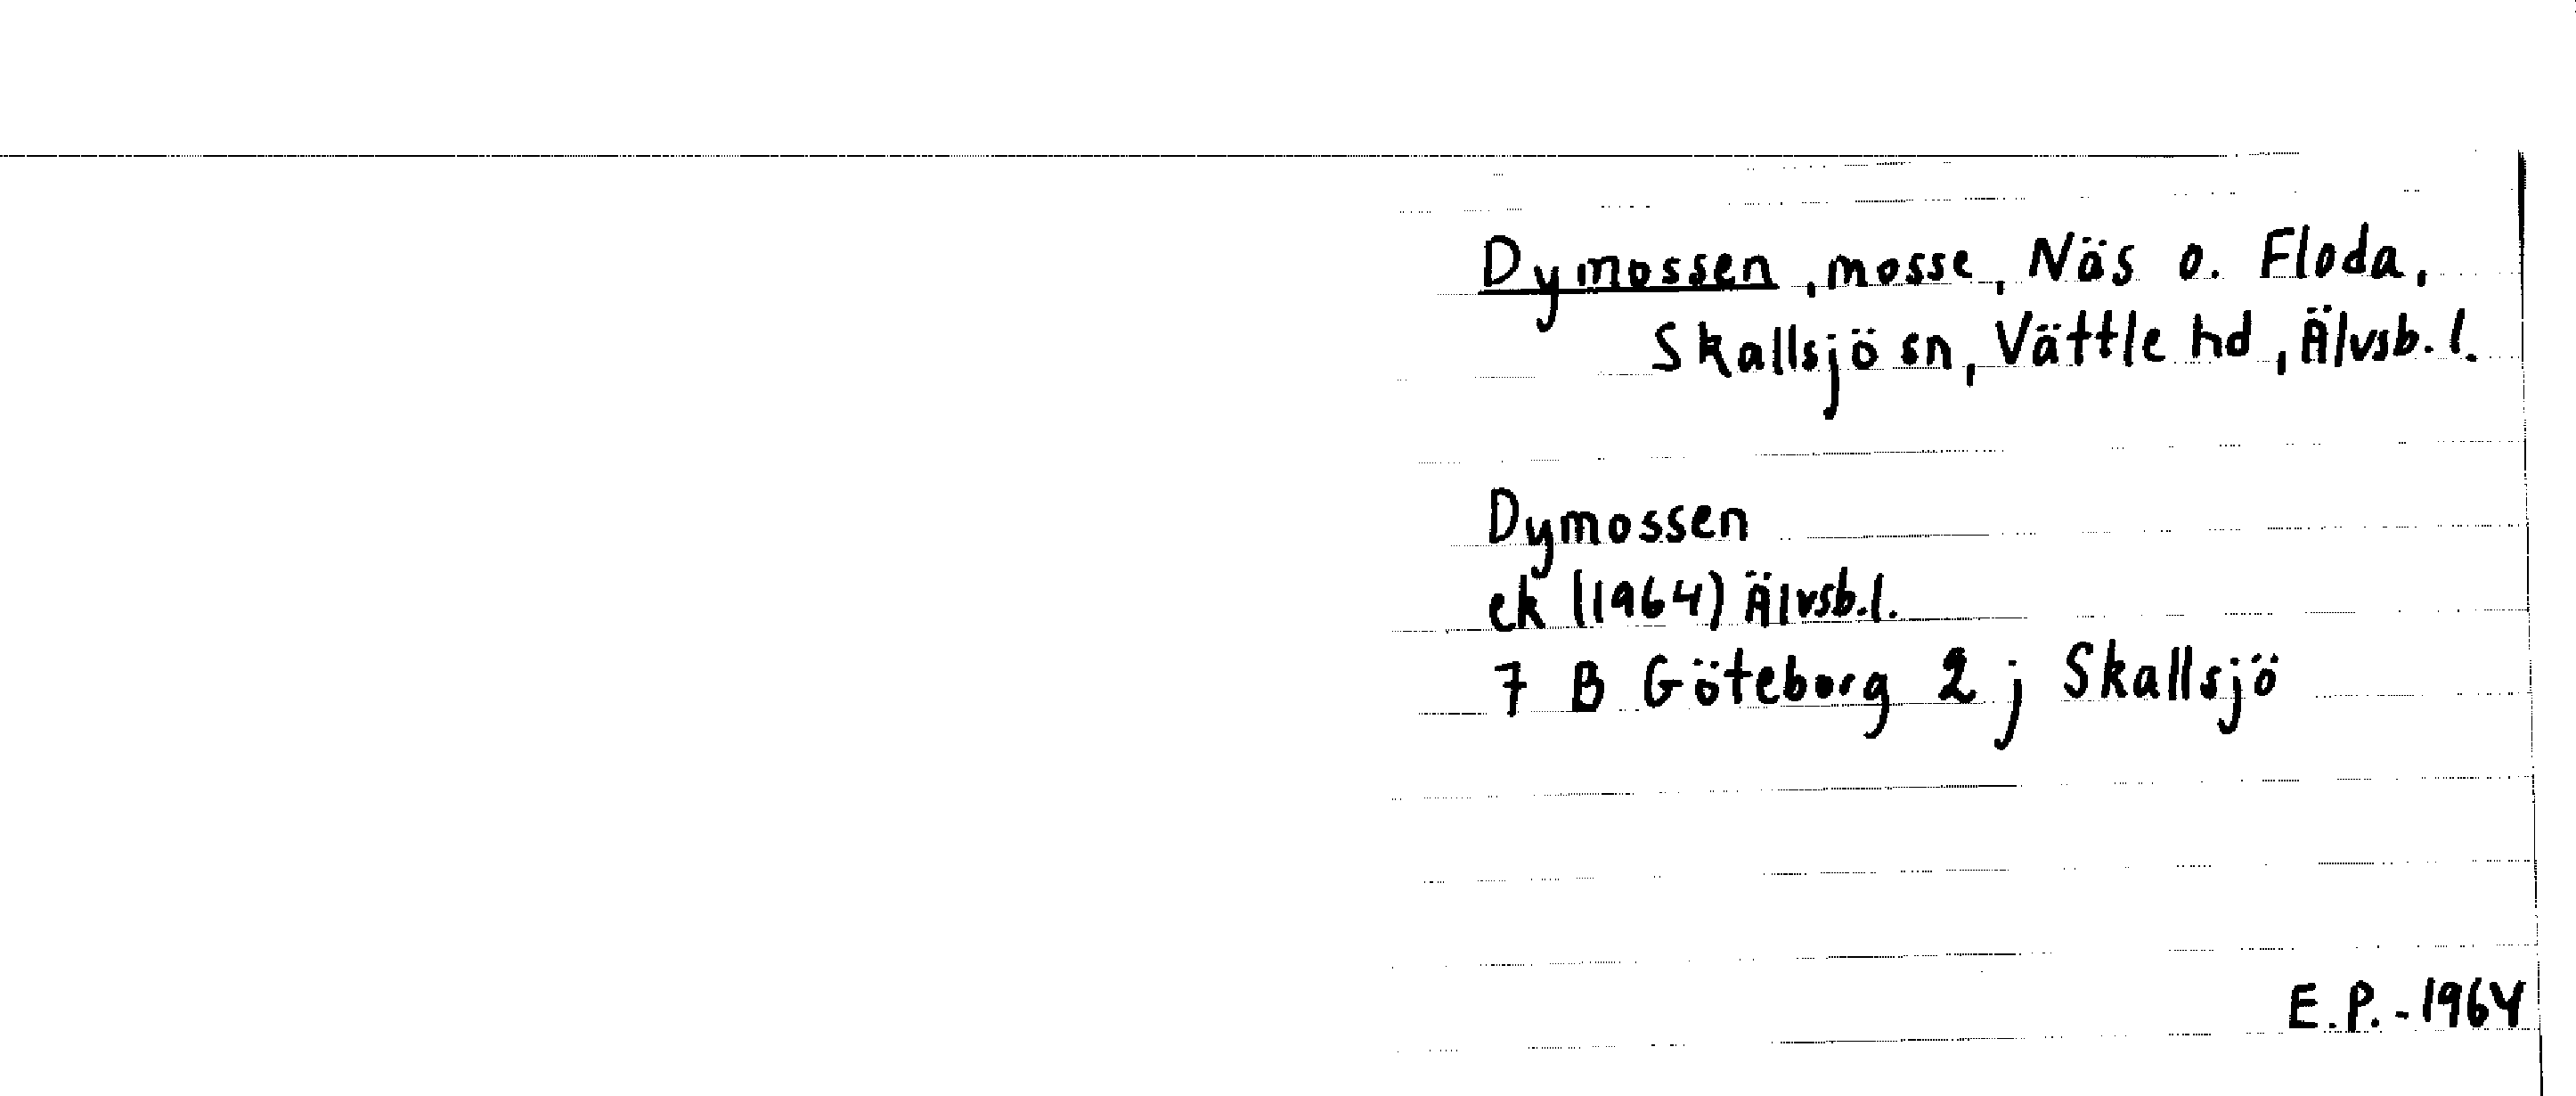 Dymossen, mosse, Näs o. Floda,
Skallsjö sn, Vättle hd, Älvsb. l.
Dymossen
ek (1964) Älvsb.l.
7 B Göteborg 2 j Skallsjö
E.P.-1964